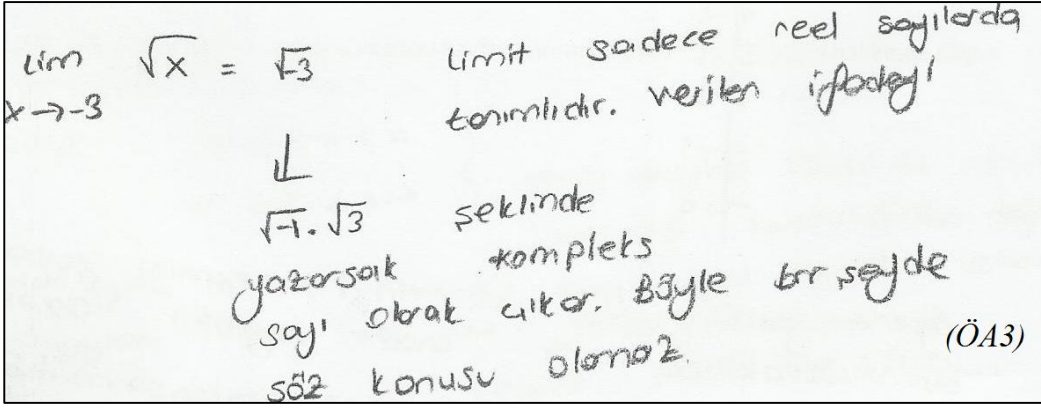 lim √x = √-3 Limit sadece reel sayılarda
x→-3 tanımlıdır. Verilen ifadeyi
√-1 . √3 şeklinde
yazarsak kompleks
sayı olarak çıkar. Böyle bir şeyde
söz konusu olamaz.
(ÖA3)